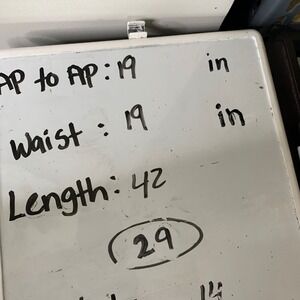 AP to AP: 19 in
Waist : 19 in
Length: 42
29
14